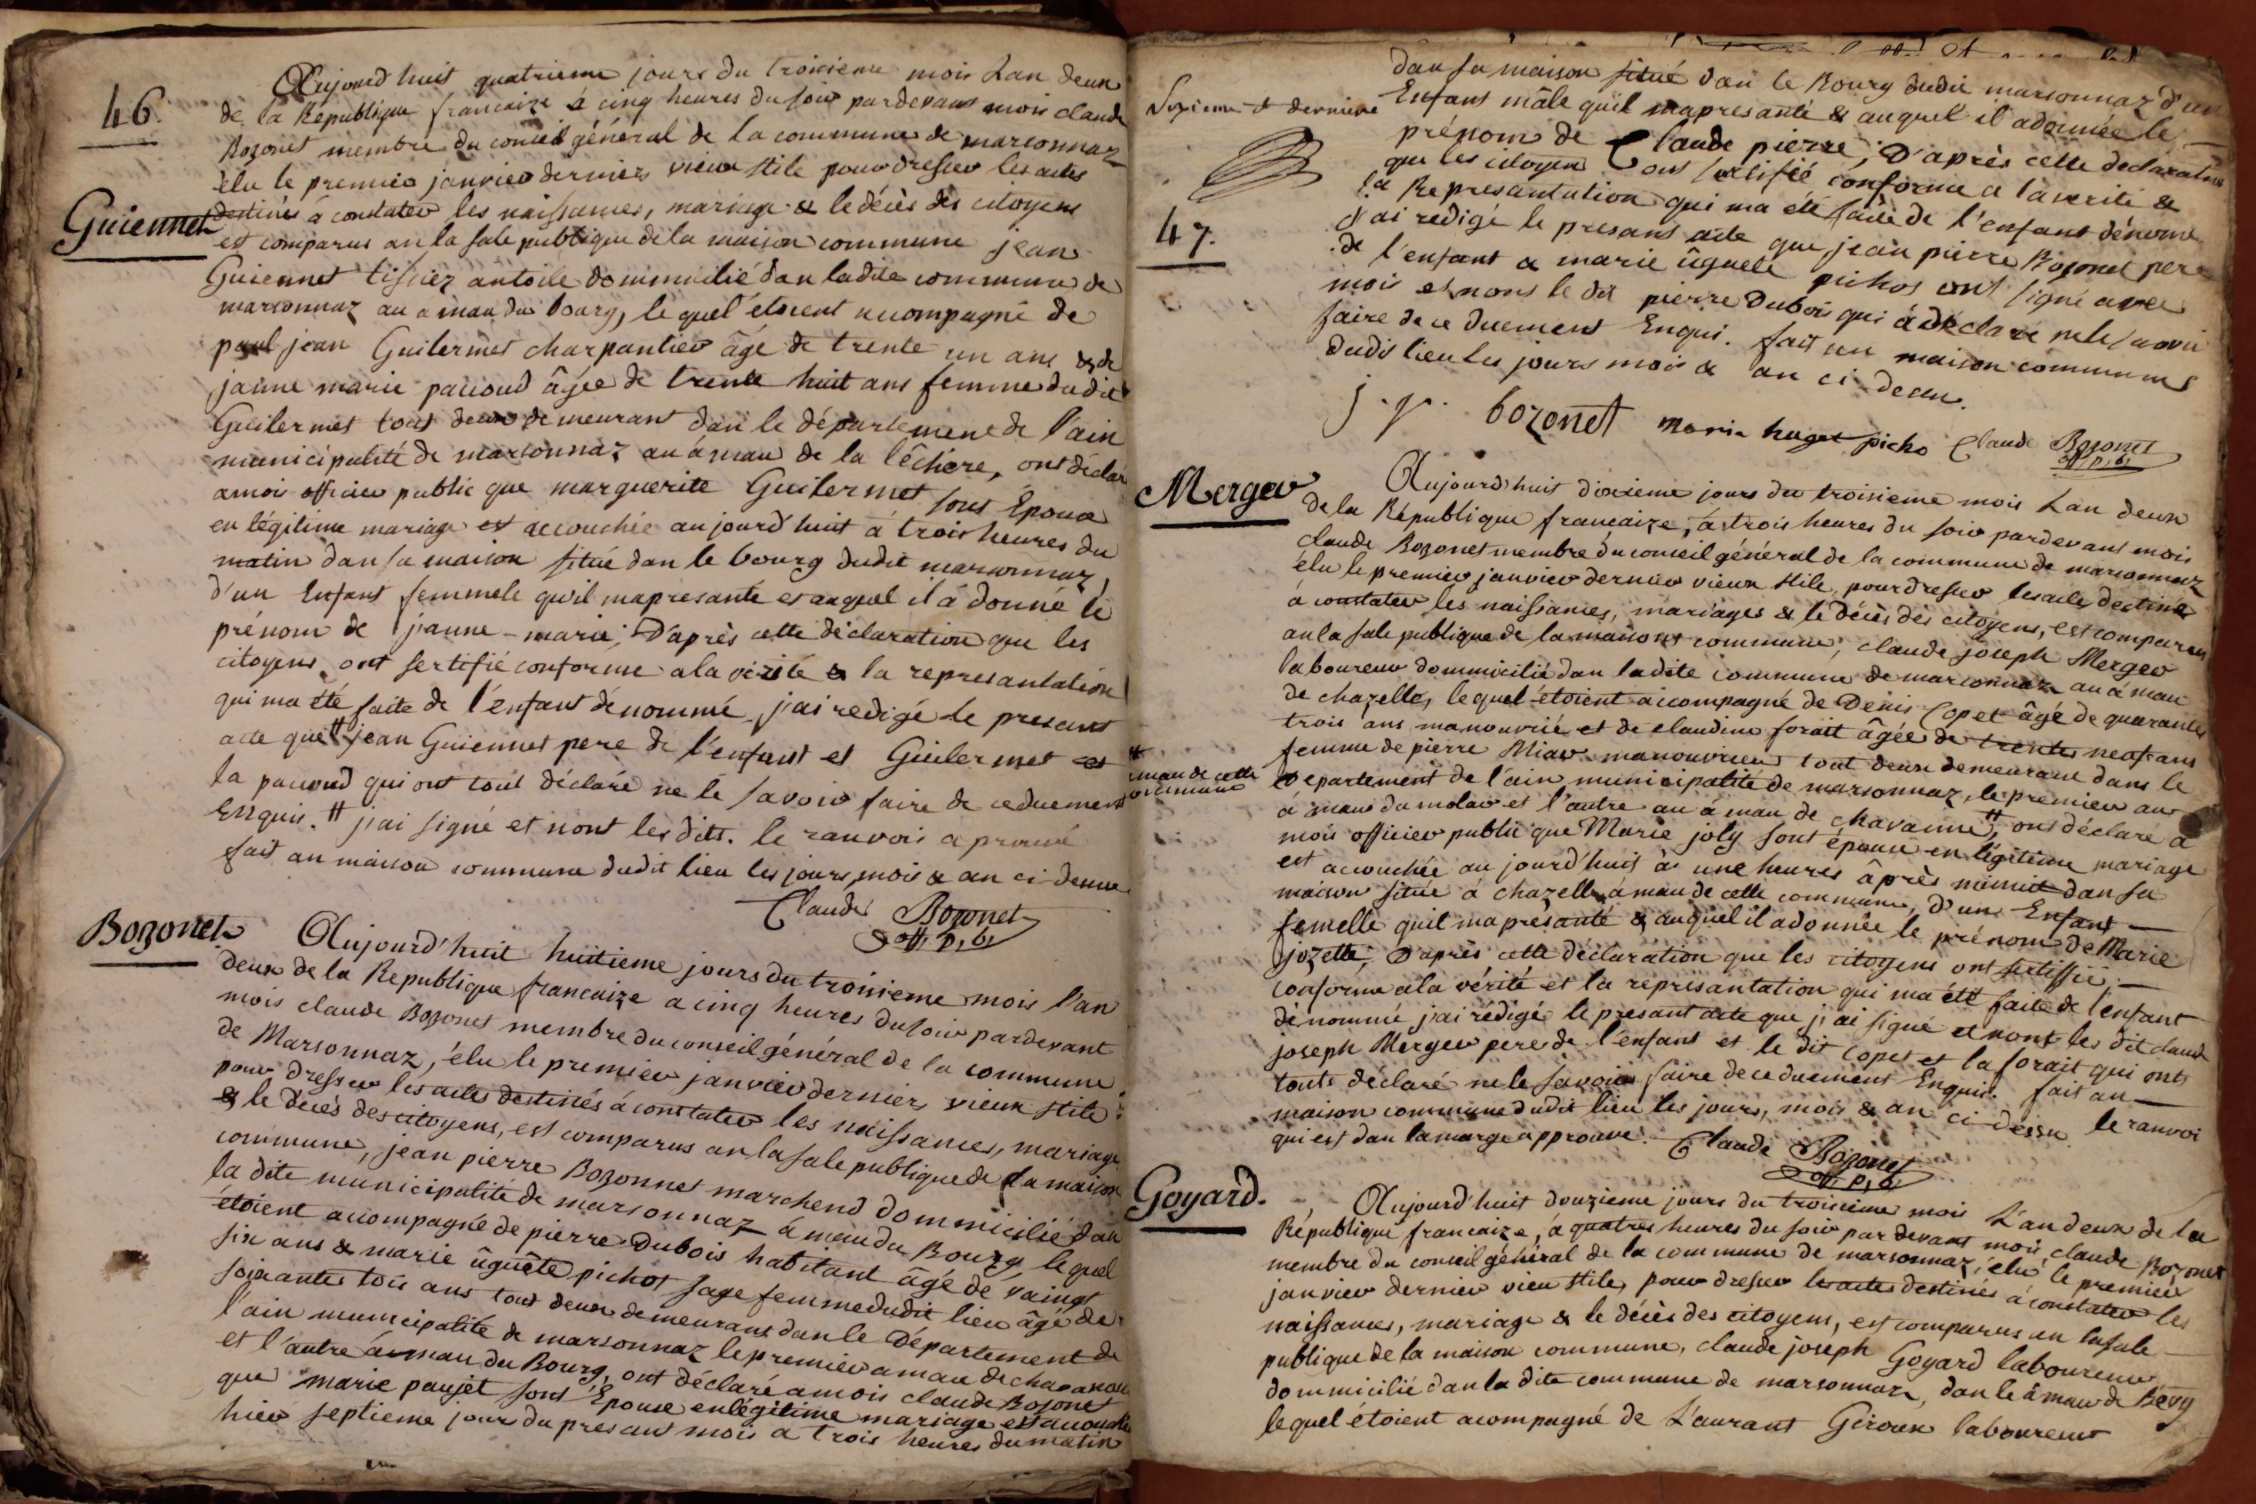 46.
Aujourd'huit quatrieme jours du troisieme mois Lan deux
de la Republique francaize à cinq heures du soir pardevant mois claude
Bozonet membre du conseil général de la commune de marsonnaz
élu le premier janvier dernier vieux stile pour dresser les actes
destinés à constater les naissances, mariage & le décès des citoyens
Guiennet
est comparus an la sale publique de la maison commune jean
Guiennet tissiez antoile dommicilié dan ladite commune de
marsonnaz au amau du bourg, le quel étoient accompagné de
paul jean Guilermet charpantier âgé de trente un ans & de
janne marie pauoud âgée de trente huit ans femme dudit
Guilermet tout deux demeurant dan le département de l'ain
municipalité de marsonnaz au ámau de la lêchere, ont déclaré
amois officier public que marguerite Guilermet sont Epouse
en légitime mariage est accouchée aujourd'huit à trois heures du
matin dan sa maison situé dan le bourg dudit marsonnaz,
d'un Enfant femmele qu'il mapresanté et auquel il à donné le
prénom de janne-marie; D'après cette déclaration que les
citoyens ont sertifié conforme a la vérité & la represantation
qui ma été faite de l'énfant dénommé j'ai redigé le presant
acte que # jean Guiennet pere de l'enfant et Guilermet et
la pauoud qui ont tout déclaré ne le savoir faire de ceduement
Enquis. # j'ai signé et nont les dits. le ranvois aprouvé
fait an maison commune dudit lieu les jours, mois & an ci-dessus
Claude Bozonet
off. p. b.
Bozonet
Aujourd'huit huitieme jours du troisieme mois l'an
deux de la Republique francaize a cinq heures du soir pardevant
mois claude Bozonet membre du conseil général de la commune
de Marsonnaz, élu le premier janvier dernier, vieux stile
pour dresser les actes destinés à constater les naissances, mariage
& le décès des citoyens, est comparus an la sale publique de la maison
commune, jean pierre Bozonnet marchend dommicilié dan
la dite municipalité de marsonnaz á mau du Bourg le quel
étoient accompagné de pierre Dubois habitant âgé de vaingt
six ans & marie ûguête pichot sage femme dudit lieu âgé de
soixante tois ans tout deux demeurant dan le Département de
l'ain municipalité de marsonnaz le premier a mau de chavanne
et l'autre á mau du Bourg, ont déclaré amois claude Bozonet
que marie paujet sont Epouse en légitime mariage est accouchée
hier septieme jour du presant mois a trois heures du matin
Sixieme & derniere
dan sa maison situé dan le Bourg dudit marsonnaz d'un
Enfant mâle qu'il mapresanté & auquel il adonnée le
prénom de Claude pierre; D'après cette declaration
que les citoyen ont sertifié conforme a la verité &
la Represantation qui ma été faite de l'enfant dénomé
47.
j'ai redigé le presant acte que jean pierre Bozonet pere
de l'enfant a marie ûguete pichot ont signé avec
mois et nons le dit pierre Dubois qui à déclaré ne le savoir
faire de ce duement Enqui. fait en maison commune
dudit lieu les jours mois & an ci dessu.
j. p. bozonet maria huget picho Claude Bozonet
off. p. b.
Merger
Aujourd'huit dixieme jours du troisieme mois Lan deux
de la République francaize, à trois heures du soir pardevant mois
claude Bozonet membre du conseil général de la commune de marsonnaz
élu le premier janvier dernier vieux stile, pour dresser les acte destiné
à constater les naissances, mariages & le décès des citoyens, est comparu
an la sale publique de la maisons commune, claude joseph Merger
laboureur dommicilié dan ladite commune de marsonnaz au à mau
de chazelle, le quel étoient accompagné de Denis Copet âgé de quarante
trois ans manouvrié et de claudine forait âgée de trente neuf ans
femme de pierre Miar manouvrier tout deux demeurant dans le
# amau de cette commune
Departement de l'ain municipalité de marsonnaz, le premier au
à mau du molar et l'autre au à mau de chavanne #, ont déclaré à
mois officier public que Marie joly sont épouse en légitime mariage
est accouchée au jourd'huit à une heures âprès minuit dan sa
maison situé à chazelle amau de cette commune, d'un Enfant
femelle quil mapresanté & auquel il adonnée le prénom de Marie
jozette; D'après cette déclaration que les citoyens ont sertiffié
conforme à la vérité et la represantation qui ma été faite de l'enfant
dénommé j'ai rédigé le presant acte que j'ai signé et nont les dit claude
joseph Merger pere de l'énfant et le dit Copet et la forait qui ont
touts déclaré ne le savoir faire de ce duement Enquis. fait an
maison commune dudit lieu les jours, mois & an ci-dessu le ranvoi
qui est dan la marge approuve. Claude Bozonet
off. p. b.
Goyard.
Aujourd'huit douzieme jours du troisieme mois L'an deux de la
République francaize, à quatres heures du soir par devant mois claude Bozonet
membre du conseil général de la commune de marsonnaz, élu le premier
janvier dernier vieu stile, pour dresser les actes destinés à constater les
naissances, mariage & le décès des citoyens, est comparus en la sale
publique de la maison commune, claude joseph Goyard laboureur
dommicilié dan la dite commune de marsonnaz, dan le á mau de Bevy
le quel étoient acompagné de L'aurant Giroux laboureur